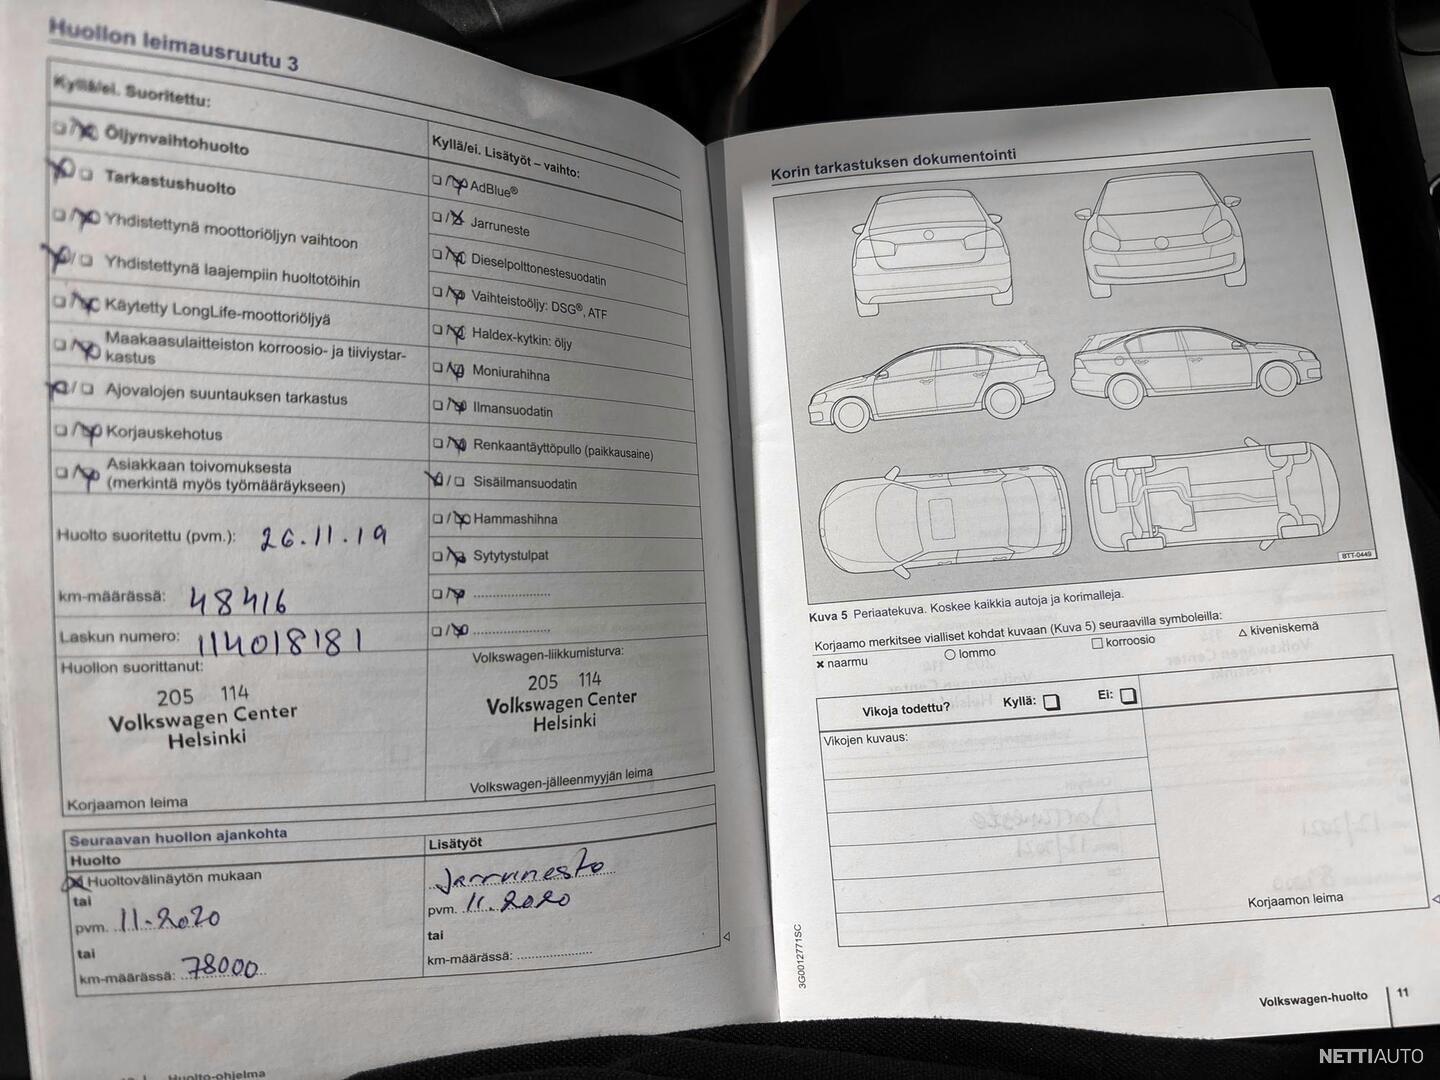 Huollon leimausruutu 3
Kyllä/ei. Suoritettu:
Öljynvaihtohuolto
Tarkastushuolto
Yhdistettynä moottoriöljyn vaihtoon
Yhdistettynä laajempiin huoltotöihin
Käytetty LongLife-moottoriöljyä
Maakaasulaitteiston korroosio- ja tiiviystar-
kastus
Ajovalojen suuntauksen tarkastus
Korjauskehotus
Asiakkaan toivomuksesta
(merkintä myös työmääräykseen)
Kyllä/ei. Lisätyöt – vaihto:
AdBlue®
Jarruneste
Dieselpolttonestesuodatin
Vaihteistoöljy: DSG®, ATF
Haldex-kytkin: öljy
Moniurahihna
Ilmansuodatin
Renkaantäyttöpullo (paikkausaine)
Sisäilmansuodatin
Hammashihna
Sytytystulpat
Huolto suoritettu (pvm.): 26.11.19
km-määrässä: 48416
Laskun numero: 114018181
Huollon suorittanut:
205 114
Volkswagen Center
Helsinki
Korjaamon leima
Volkswagen-liikkumisturva:
205 114
Volkswagen Center
Helsinki
Volkswagen-jälleenmyyjän leima
Seuraavan huollon ajankohta
Huolto
Huoltovälinäytön mukaan
tai
pvm. 11.2020
tai
km-määrässä: 78000
Lisätyöt
Jarruneste
pvm. 11.2020
tai
km-määrässä:
Huolto-ohjelma
Korin tarkastuksen dokumentointi
BTT-0449
Kuva 5 Periaatekuva. Koskee kaikkia autoja ja korimalleja.
Korjaamo merkitsee vialliset kohdat kuvaan (Kuva 5) seuraavilla symboleilla:
naarmu lommo korroosio kiveniskemä
Vikoja todettu? Kyllä: Ei:
Vikojen kuvaus:
Korjaamon leima
3G0012771SC
Volkswagen-huolto 11
NETTIAUTO